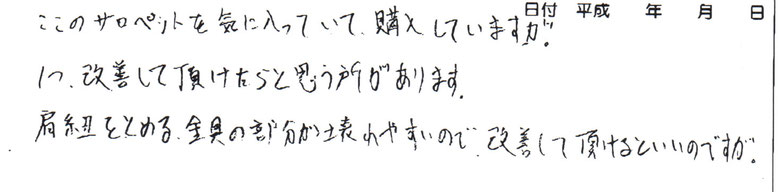 日付 平成 年 月 日
ここのサロペットを気に入っていて、購入していますが、
1つ、改善して頂けたらと思う所があります。
肩紐をとめる、金具の部分が壊れやすいので、改善して頂けるといいのですが。